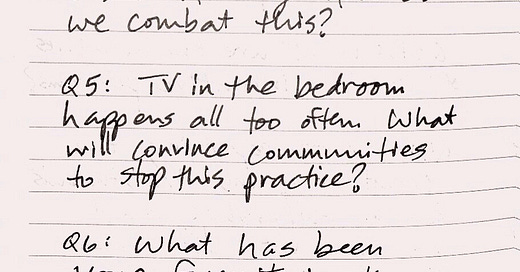 we combat this?
Q5: TV in the bedroom
happens all too often. What
will convince communities
to stop this practice?
Q6: What has been